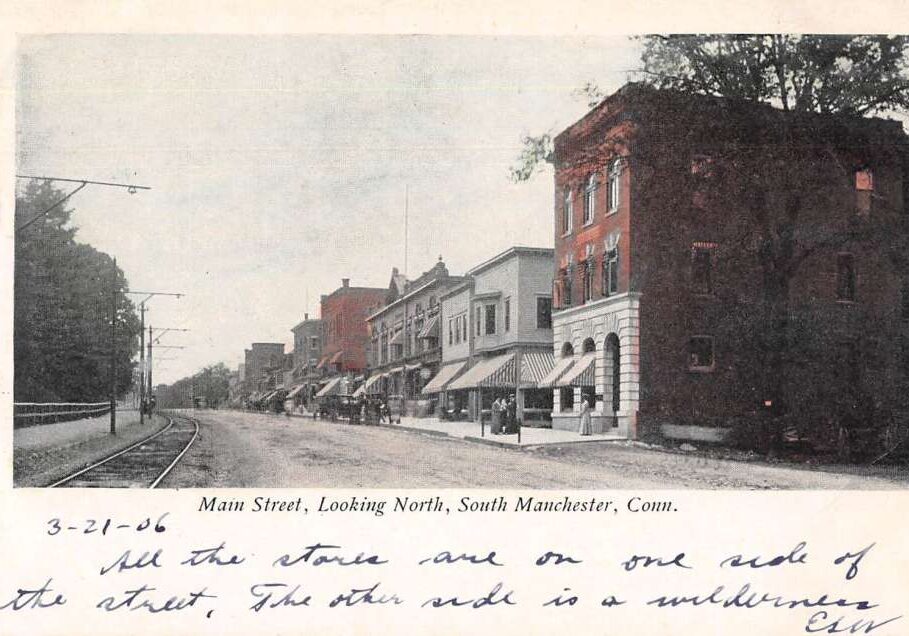 Main Street, Looking North, South Manchester, Conn.
3-21-06
All the stores are on one side of
the street, The other side is a wilderness
ESW